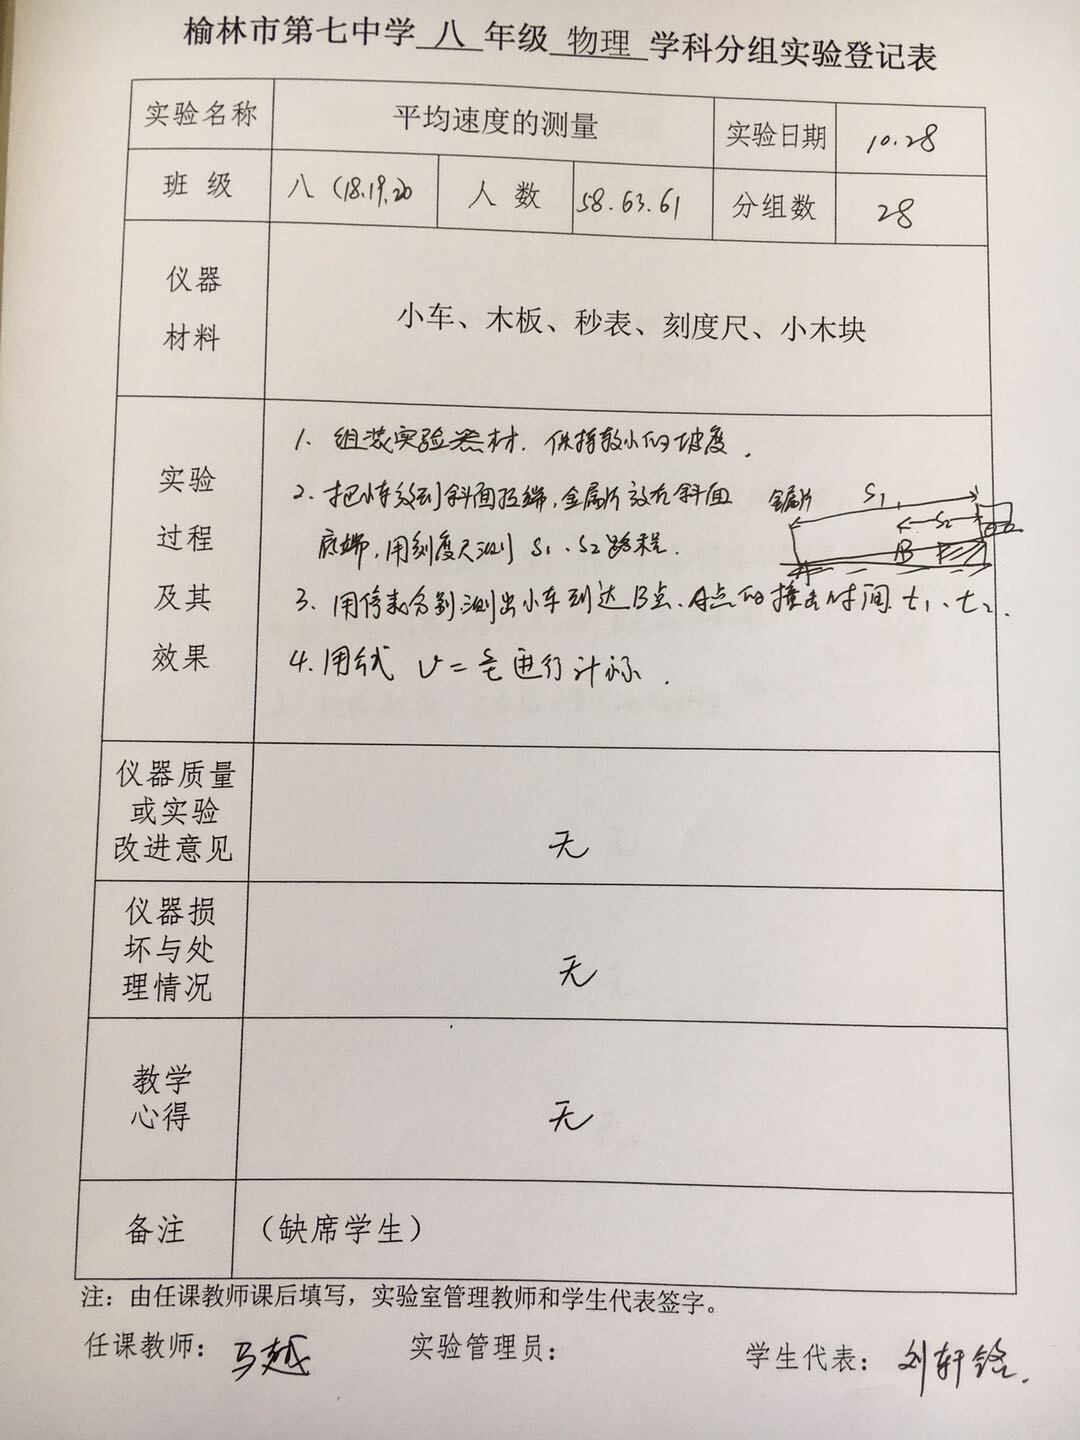 榆林市第七中学 八 年级 物理 学科分组实验登记表
实验名称 平均速度的测量 实验日期 10.28
班 级 八(18.19.20 人 数 58.63.61 分组数 28
仪器
材料
小车、木板、秒表、刻度尺、小木块
实验
过程
及其
效果
1. 组装实验器材. 保持较小的坡度.
2. 把小车放到斜面顶端,金属片放在斜面
底端,用刻度尺测 S₁、S₂路程.
金属片 S₁ S₂ B A
3. 用停表分别测出小车到达B点、A点的撞击时间 t₁、t₂.
4. 用公式 v = s/t 进行计算.
仪器质量
或实验
改进意见
无
仪器损
坏与处
理情况
无
教学
心得
无
备注 (缺席学生)
注:由任课教师课后填写,实验室管理教师和学生代表签字。
任课教师: 马越 实验管理员: 学生代表: 刘轩铭.